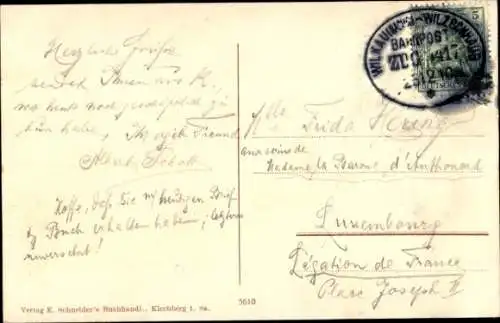 Herzliche Grüße
sendet Ihnen aus K.,
wo heute noch zu
tun habe, Ihr Freund
Albert
Hoffe, daß Sie m/ heutigen Brief
& Buch erhalten haben; letztres
unversehrt!
Verlag E. Schneider's Buchhandl., Kirchberg i. Sa.
5610
5
WILKAU
BAHNPOST
ZUG 1417
12 10
Mlle Frida
aux soins de
Madame la Baronne d'Anthouard
Luxembourg
Légation de France
Place Joseph II